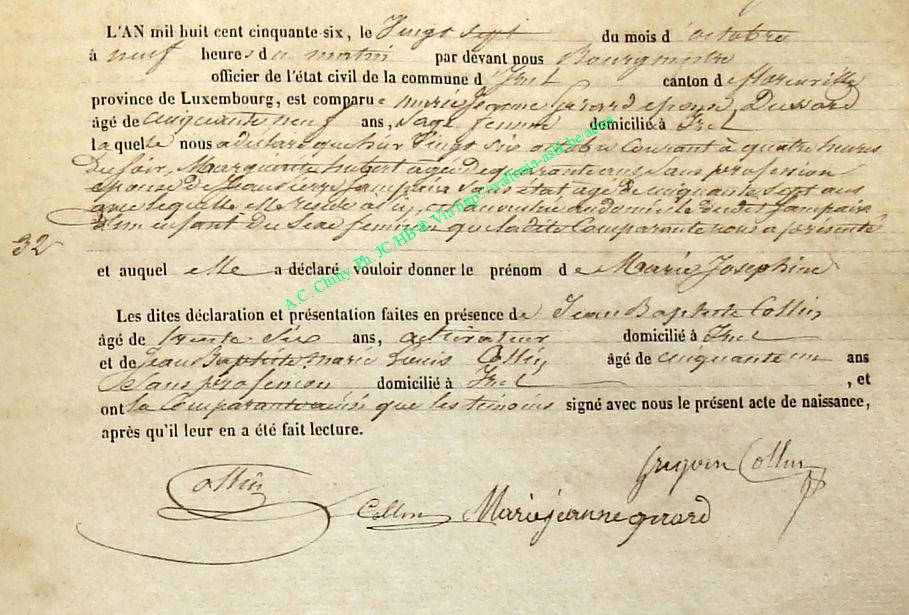 L'AN mil huit cent cinquante-six, le Vingt sept du mois d'octobre
à neuf heures du matin par devant nous Bourgmestre
officier de l'état civil de la commune d'Izel canton de florenville
province de Luxembourg, est comparue marie Jeanne gerard epouse Dussard
âgé de cinquante neuf ans, sage femme domicilié à Izel
laquelle nous a déclaré que hier Vingt six octobre Courant à quatre heures
Du soir, Marguerite hubert agée de quarante ans Sans profession
epouse De Jean Pierre Sans état agé De cinquante sept ans
avec lequel elle reside à Izel, est accouchée au domicile dudit
D'un enfant Du Sexe feminin que ladite Comparante nous a présenté
32
et auquel elle a déclaré vouloir donner le prénom de Marie Josephine
Les dites déclaration et présentation faites en présence de Jean Baptiste Collin
âgé de trente-Six ans, cultivateur domicilié à Izel
et de Jean Baptiste marie Louis Collin âgé de cinquante un ans
Sans profession domicilié à Izel , et
ont la Comparante ainsi que les témoins signé avec nous le présent acte de naissance,
après qu'il leur en a été fait lecture.
Collin
Collin Marie jeanne gerard
Collin
A.C. Chiny Ph. JC/HB @ Via http://wallonia-asbl.be/actes